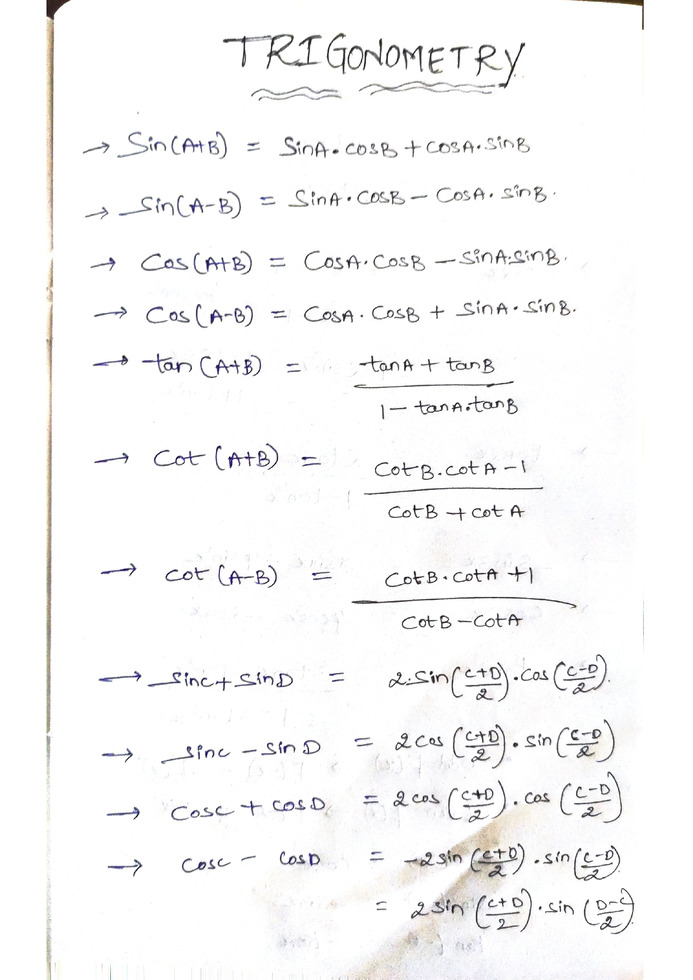 TRIGONOMETRY
→ Sin(A+B) = SinA.cosB + cosA.sinB
→ Sin(A-B) = SinA.CosB - CosA.sinB.
→ Cos(A+B) = CosA.CosB - sinA.sinB.
→ Cos(A-B) = CosA.CosB + SinA.SinB.
→ tan(A+B) = tanA + tanB
1- tanA.tanB
→ Cot(A+B) = CotB.cotA -1
CotB + cotA
→ Cot(A-B) = CotB.CotA +1
CotB - CotA
→ Sinc + SinD = 2.Sin(C+D/2).Cos(C-D/2).
→ Sinc - SinD = 2cos(C+D/2).sin(C-D/2)
→ Cosc + cosD = 2cos(C+D/2).cos(C-D/2)
→ Cosc - CosD = -2sin(C+D/2).sin(C-D/2)
= 2sin(C+D/2).sin(D-C/2).